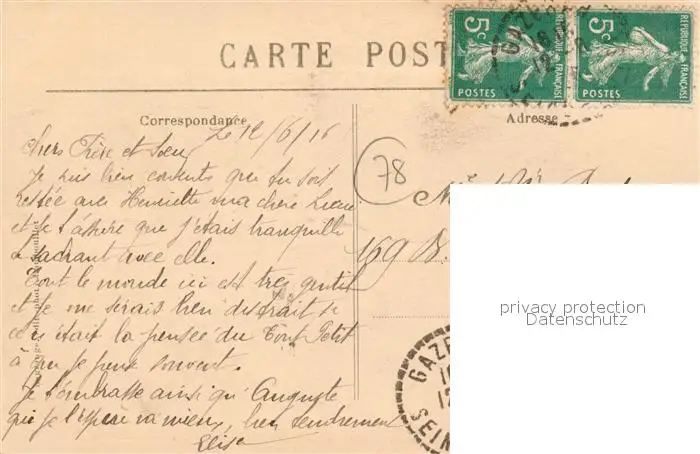 CARTE POST
5c
REPUBLIQUE FRANÇAISE
POSTES
5c
REPUBLIQUE FRANÇAISE
POSTES
Correspondance
Adresse
Le 12/6/16
Chers Frère et Soeur
Je suis bien contente que tu sois
restée avec Henriette ma chère
et je t'assure que j'étais tranquille
avec elle.
Tout le monde ici est très gentil
et je me serais bien distrait si
ce n'était la pensée du Tout Petit
à qui je pense souvent.
Je t'embrasse ainsi qu'Auguste
qui je l'espère va mieux, bien tendrement
Elise
78
169 B.
privacy protection
Datenschutz
GAZE
SEIN